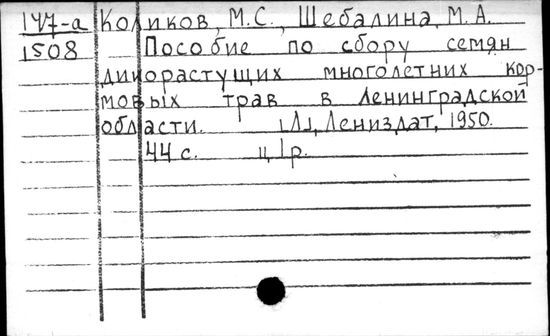 147-а Коликов, М.С., Шебалина, М.А.
1508 Пособие по сбору семян
дикорастущих многолетних кор-
мовых трав в Ленинградской
области. [Л], Лениздат, 1950.
44 с. ц. 1 р.